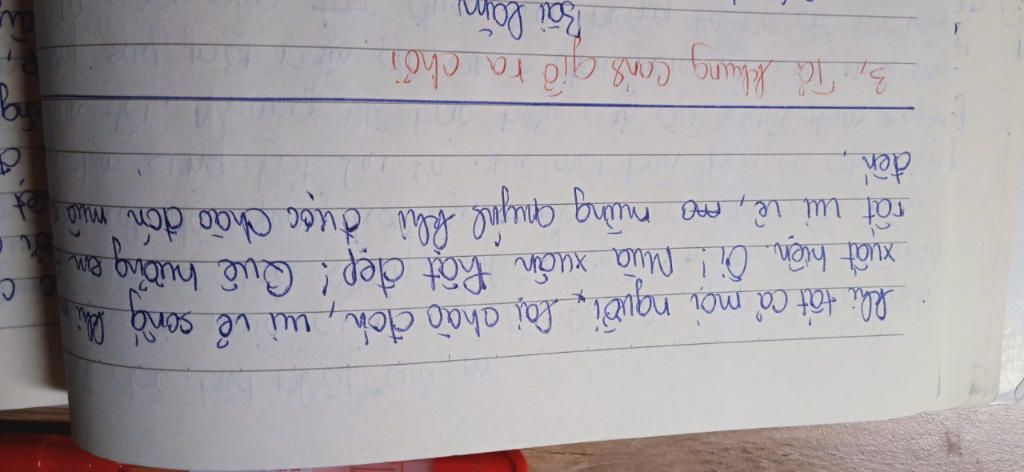 khi tất cả mọi người lại chào đón, vui vẻ song khi
xuất hiện. Ôi! Mùa xuân thật đẹp! Quê hương em
rất vui vẻ, mừng quýnh khi được chào đón mùa
đến.
3, Tả khung cảnh giờ ra chơi
Bài làm